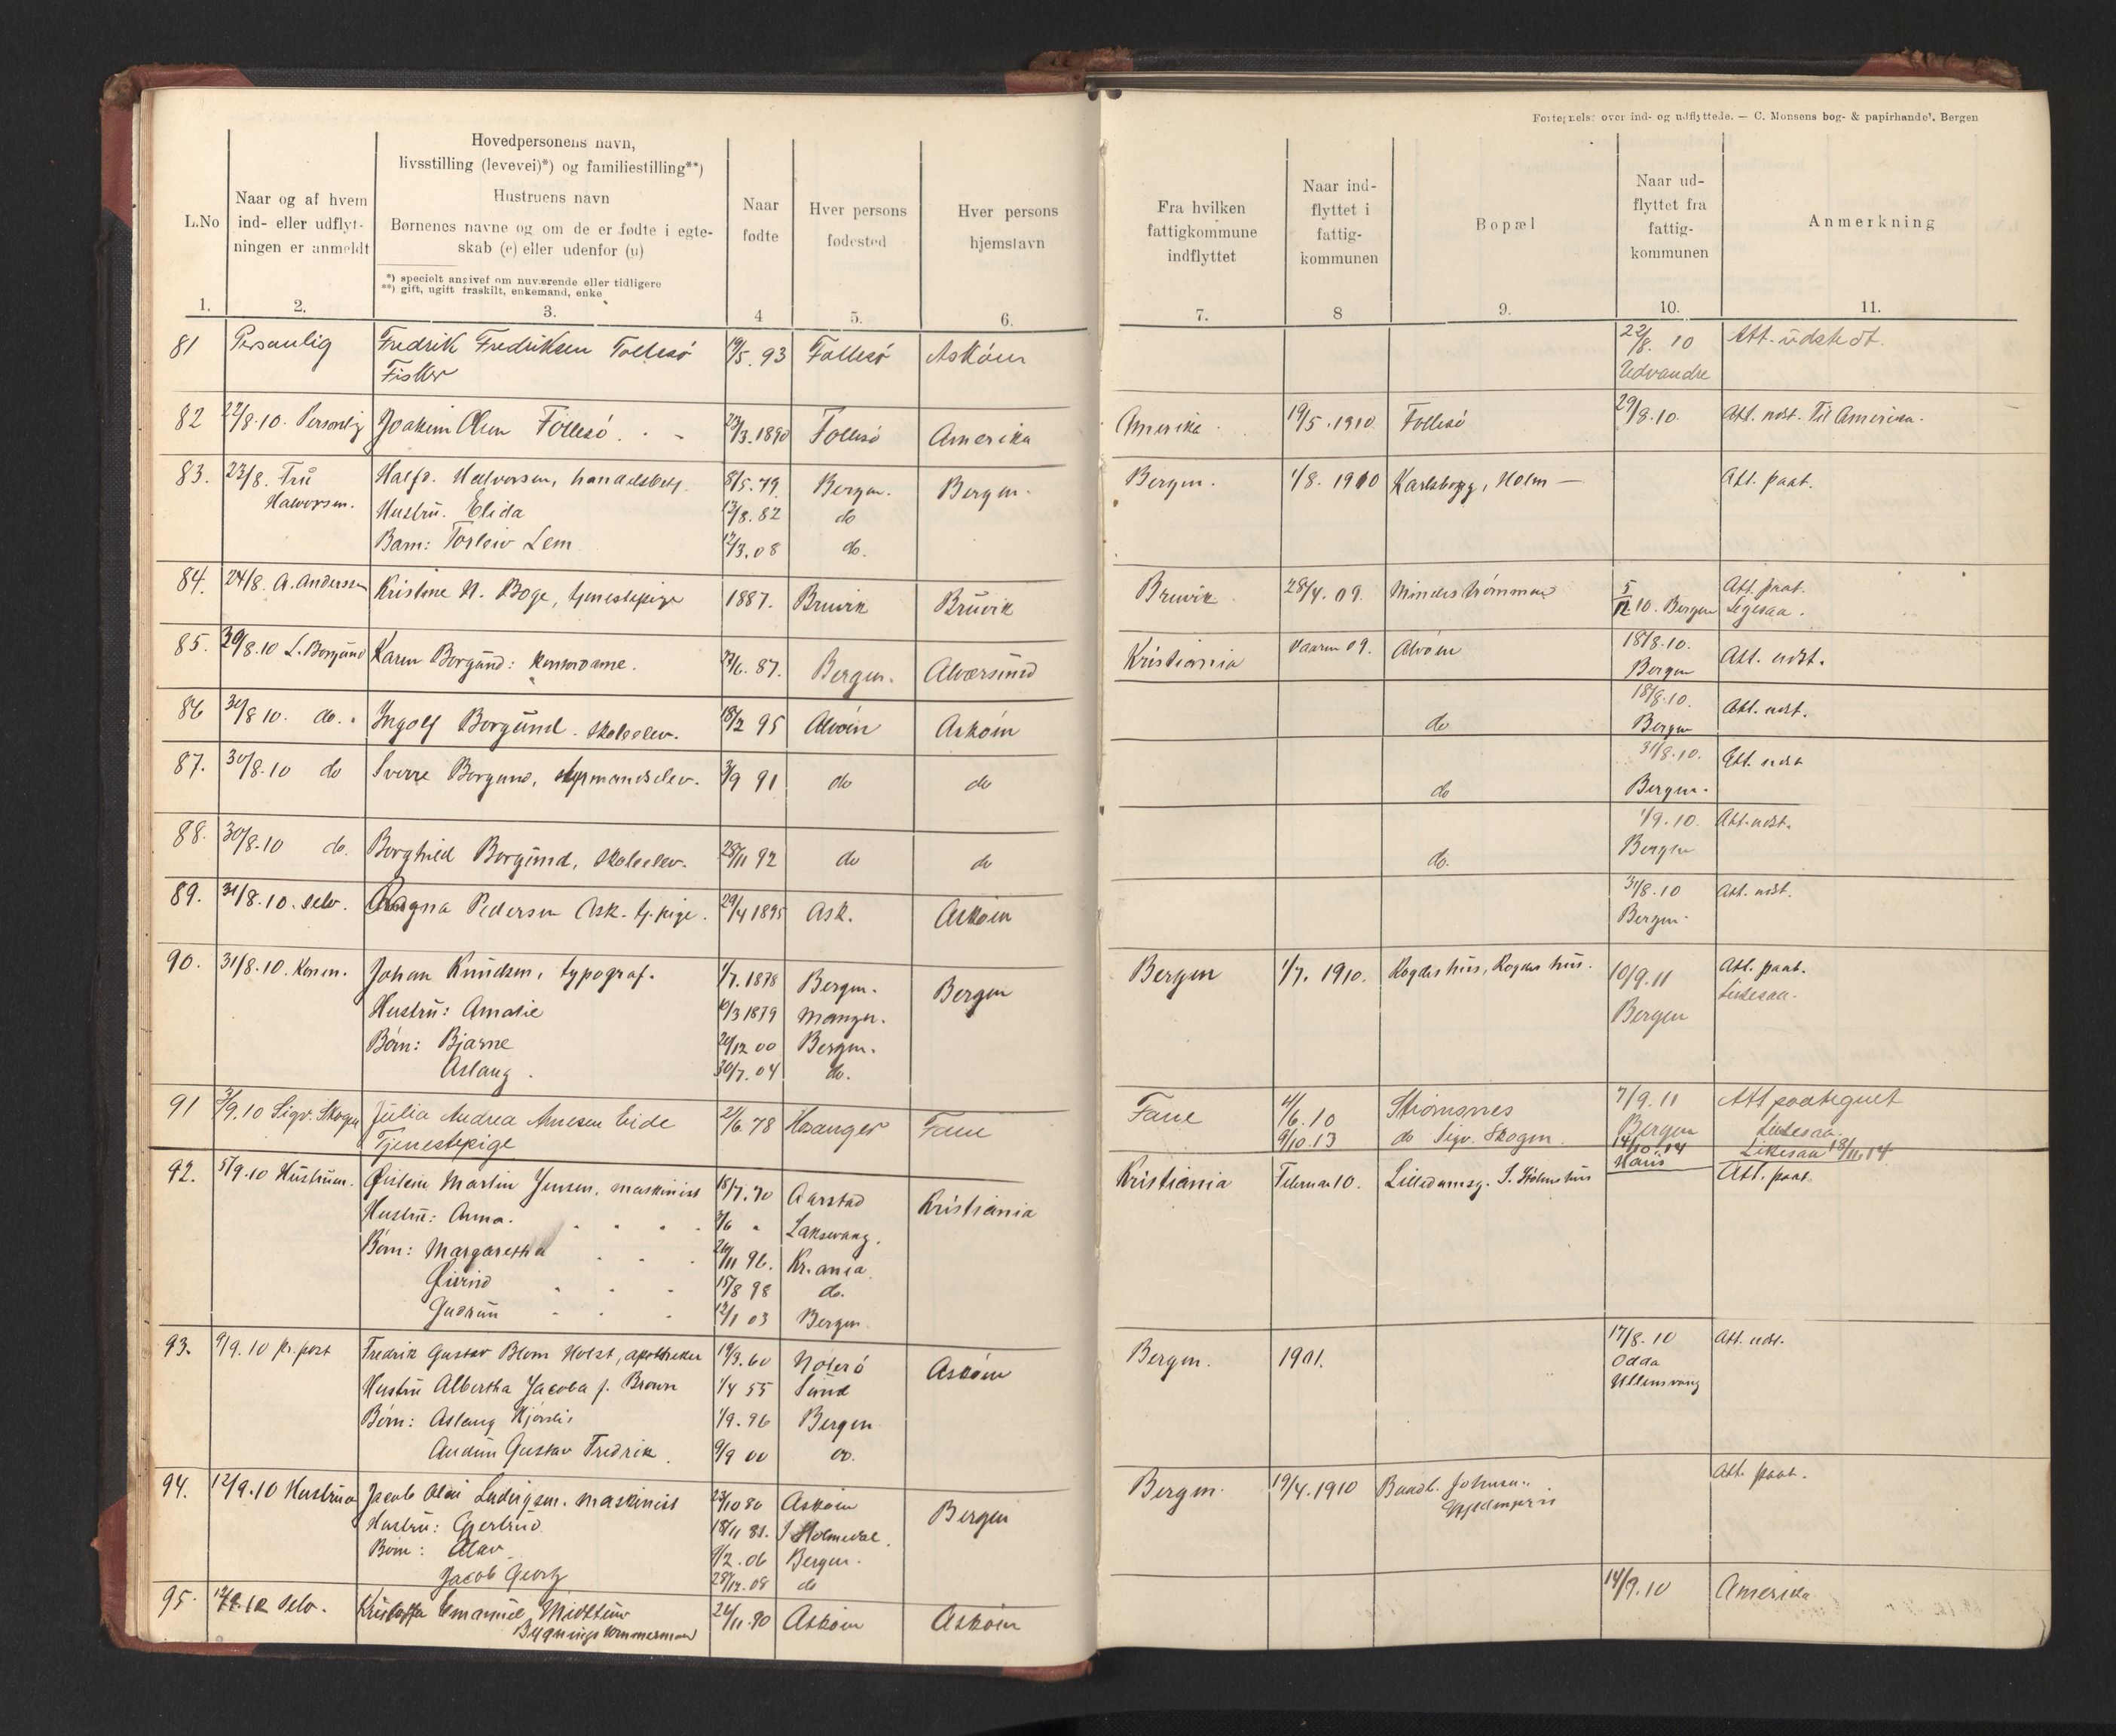 Fortegnelse over ind- og udflyttede. — C. Monsens bog- & papirhandel, Bergen
L.No
Naar og af hvem
ind- eller udflyt-
ningen er anmeldt
Hovedpersonens navn,
livsstilling (levevei)*) og familiestilling**)
Hustruens navn
Børnenes navne og om de er fødte i egte-
skab (e) eller udenfor (u)
*) specielt angivet om nuværende eller tidligere
**) gift, ugift fraskilt, enkemand, enke
Naar
fødte
Hver persons
fødested
Hver persons
hjemstavn
Fra hvilken
fattigkommune
indflyttet
Naar ind-
flyttet i
fattig-
kommunen
Bopæl
Naar ud-
flyttet fra
fattig-
kommunen
Anmerkning
1. 2. 3. 4 5. 6. 7. 8 9. 10. 11.
81 Personlig Fredrik Fredriksen Follesö 19/5 93 Follesö Asköen 22/8. 10 Att. udstedt.
Fisker Udvandre
82 22/8.10. Personlig Joakim Olsen Follesö 23/3.1890 Follesö Amerika Amerika 19/5.1910 Follesö 29/8.10. Att. udst. Til Amerika.
83. 23/8. Fru Halfd. Halvorsen, handelsbetj. 8/5.79. Bergen. Bergen. Bergen. 1/8. 1910 Karlsbogg, Holm — Att. paat.
Halvorsen. Hustrü. Elida 13/8.82 do
Barn: Torleiv Lem 12/3.08 do.
84. 24/8. A. Anderssen Kristine N. Boge, tjenestepige 1887. Bruvik Brüvik Bruvik 28/4.09. Mindeströmmen 5/12 10. Bergen Att. paat.
Ligesaa.
85. 30/8.10 L. Borgünd Karen Borgünd: 23/6.87. Bergen. Alversünd Kristiania Vaaren 09. Alvöen 18/8.10. Att. udst.
Bergen
86 30/8 10. do. Ingolf Borgünd. skoleelev. 18/2 95 Alvöen Asköen do 18/8.10. Att. udst.
Bergen
87. 30/8.10 do Sverre Borgund, styrmandselev. 3/9 91 do do do 31/8.10. Att. udst
Bergen.
88. 30/8.10 do. Borghild Borgünd, skoleelev. 28/11 92 do do do. 1/9.10. Att. udst.
Bergen
89. 31/8.10. selv. Ragna Pedersen Ask. tj. pige. 29/4 1895 Ask. Asköen 31/8.10 Att. udst.
Bergen.
90. 31/8.10. Konen. Johan Knüdsen, typograf. 1/7.1878 Bergen. Bergen Bergen 1/7. 1910. Rogdes hüs, Rogdes hüs. 10/9.11 Att. paat.
Hustrü: Amalie 10/3 1879 Manger. Bergen
Börn: Bjarne 20/12 00 Bergen.
Aslaug. 30/7.04 do.
91 3/9.10 Sigv. Skogen Jülia Andrea Eide 21/6.78 Fane Fane 4/6.10 Strömsnes 7/9.11 Att paategnet
Tjenestepige 9/10.13 do Sigv. Skogen Bergen
14/10.14 18/11.14
92. 5/9.10 Hüstruen. Øistein Martin Jensen, maskinist 18/7.70 Aarstad Kristiania Kristiania Februar 10. Lilledamsg. Hüs Att. paat.
Hustrü: Anna. 3/6 " Laksevaag.
Börn: Margaretha 26/11 96. Kr.ania
Øivind 15/8 98 do.
Gudrün 12/1 03 Bergen
93. 9/9.10 pr. post Fredrik Gustav Blom Holst, apotheker 19/3.60 Nöterö Asköen Bergen. 1901. 17/8.10 Att. udst.
Hustrü Albertha Jacoba f. Brown 1/4 55 Sünd Odda
Börn: Aslaug Hjördis 1/9.96 Bergen Ullensvang
Audün Gustav Fredrik 9/9 00 do.
94. 12/9.10 Hustrua Jacob Olai Ludvigsen. maskinist 23/10 80 Asköen Bergen Bergen. 19/4.1910 Johnsen Att. paat.
Hustrü: Gjertrüd 18/11 81. S Holmedal.
Börn: Olav 9/2.06 Bergen.
Jacob Georg 28/12.08 do
95. selv. Emanüel Midttün 26/11.90 Asköen Asköen 14/9.10 Amerika
Bygningstömmermand